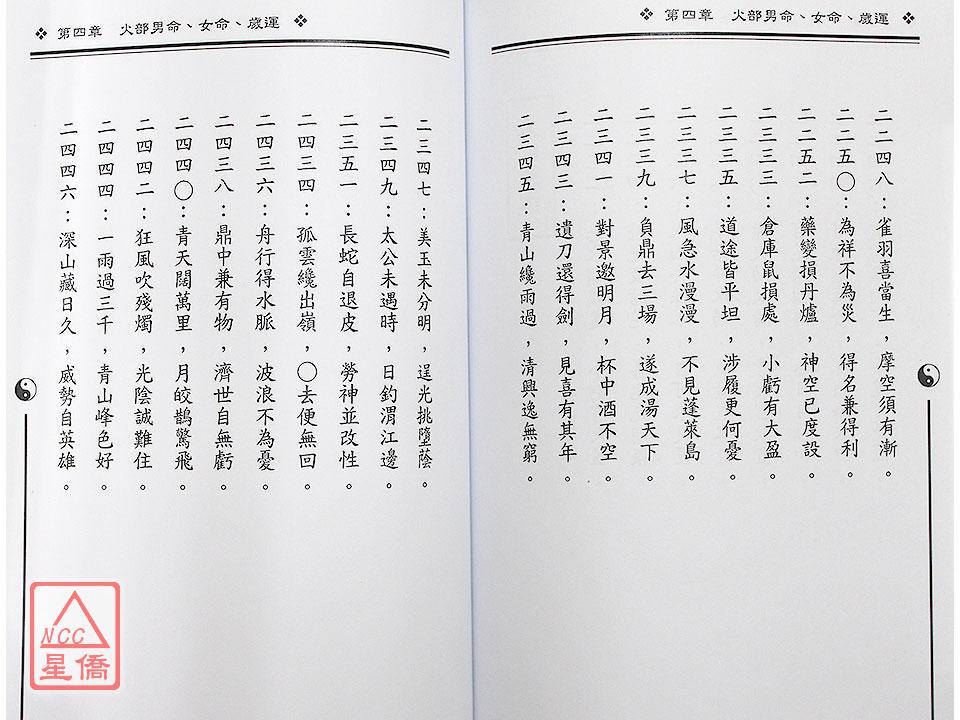 第四章　火部男命、女命、歲運
二二四八：雀羽喜當生，摩空須有漸。
二二五〇：為祥不為災，得名兼得利。
二二五二：藥變損丹爐，神空已度設。
二三三三：倉庫鼠損處，小虧有大盈。
二三三五：道途皆平坦，涉履更何憂。
二三三七：風急水漫漫，不見蓬萊島。
二三三九：負鼎去三場，遂成湯天下。
二三四一：對景邀明月，杯中酒不空。
二三四三：遺刀還得劍，見喜有其年。
二三四五：青山纔雨過，清興逸無窮。
第四章　火部男命、女命、歲運
二三四七：美玉未分明，逞光挑墮蔭。
二三四九：太公未遇時，日釣渭江邊。
二三五一：長蛇自退皮，勞神並改性。
二四三四：孤雲纔出嶺，〇去便無回。
二四三六：舟行得水脈，波浪不為憂。
二四三八：鼎中兼有物，濟世自無虧。
二四四〇：青天闊萬里，月皎鵲驚飛。
二四四二：狂風吹殘燭，光陰誠難住。
二四四四：一雨過三千，青山峰色好。
二四四六：深山藏日久，威勢自英雄。
NCC
星僑